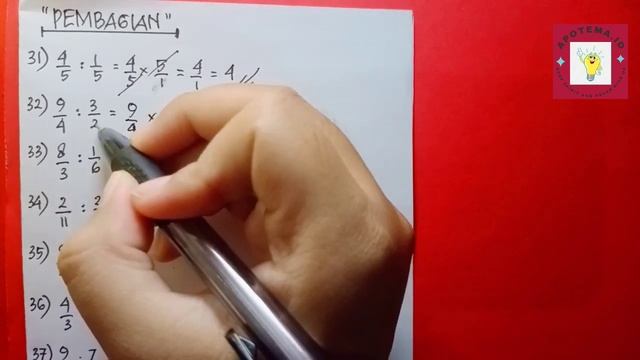 "PEMBAGIAN"
31) 4/5 : 1/5 = 4/5 × 5/1 = 4/1 = 4 //
32) 9/4 : 3/2 = 9/4 ×
33) 8/3 : 1/6
34) 2/11 :
35)
36) 4/3
37) 9 : 7
APOTEMA.ID